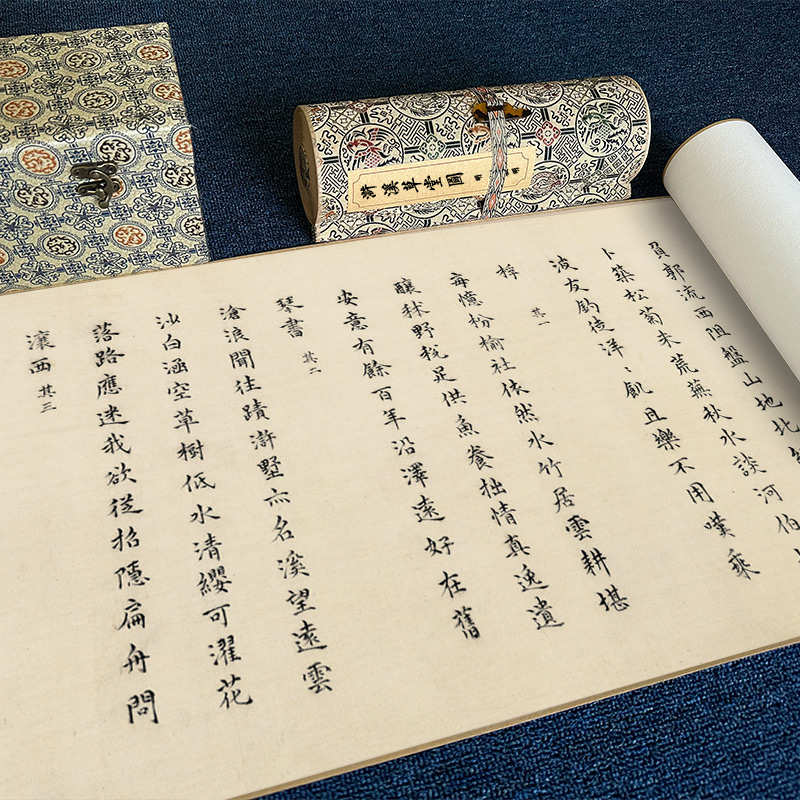 滸溪草堂圖 明 明
貟郭流西阻盤山地北
卜築松菊未荒蕪秋水談河伯
波友釣徒洋〻飢且樂不用嘆乘
桴 其一
每憶枌榆社依然水竹居雲耕堪
釀秫野稅足供魚養拙情真逸遺
安意有餘百年沿澤遠好在舊
琴書 其二
滄浪聞往蹟滸墅亦名溪望遠雲
沙白涵空草樹低水清纓可濯花
落路應迷我欲從招隱扁舟問
瀼西 其三